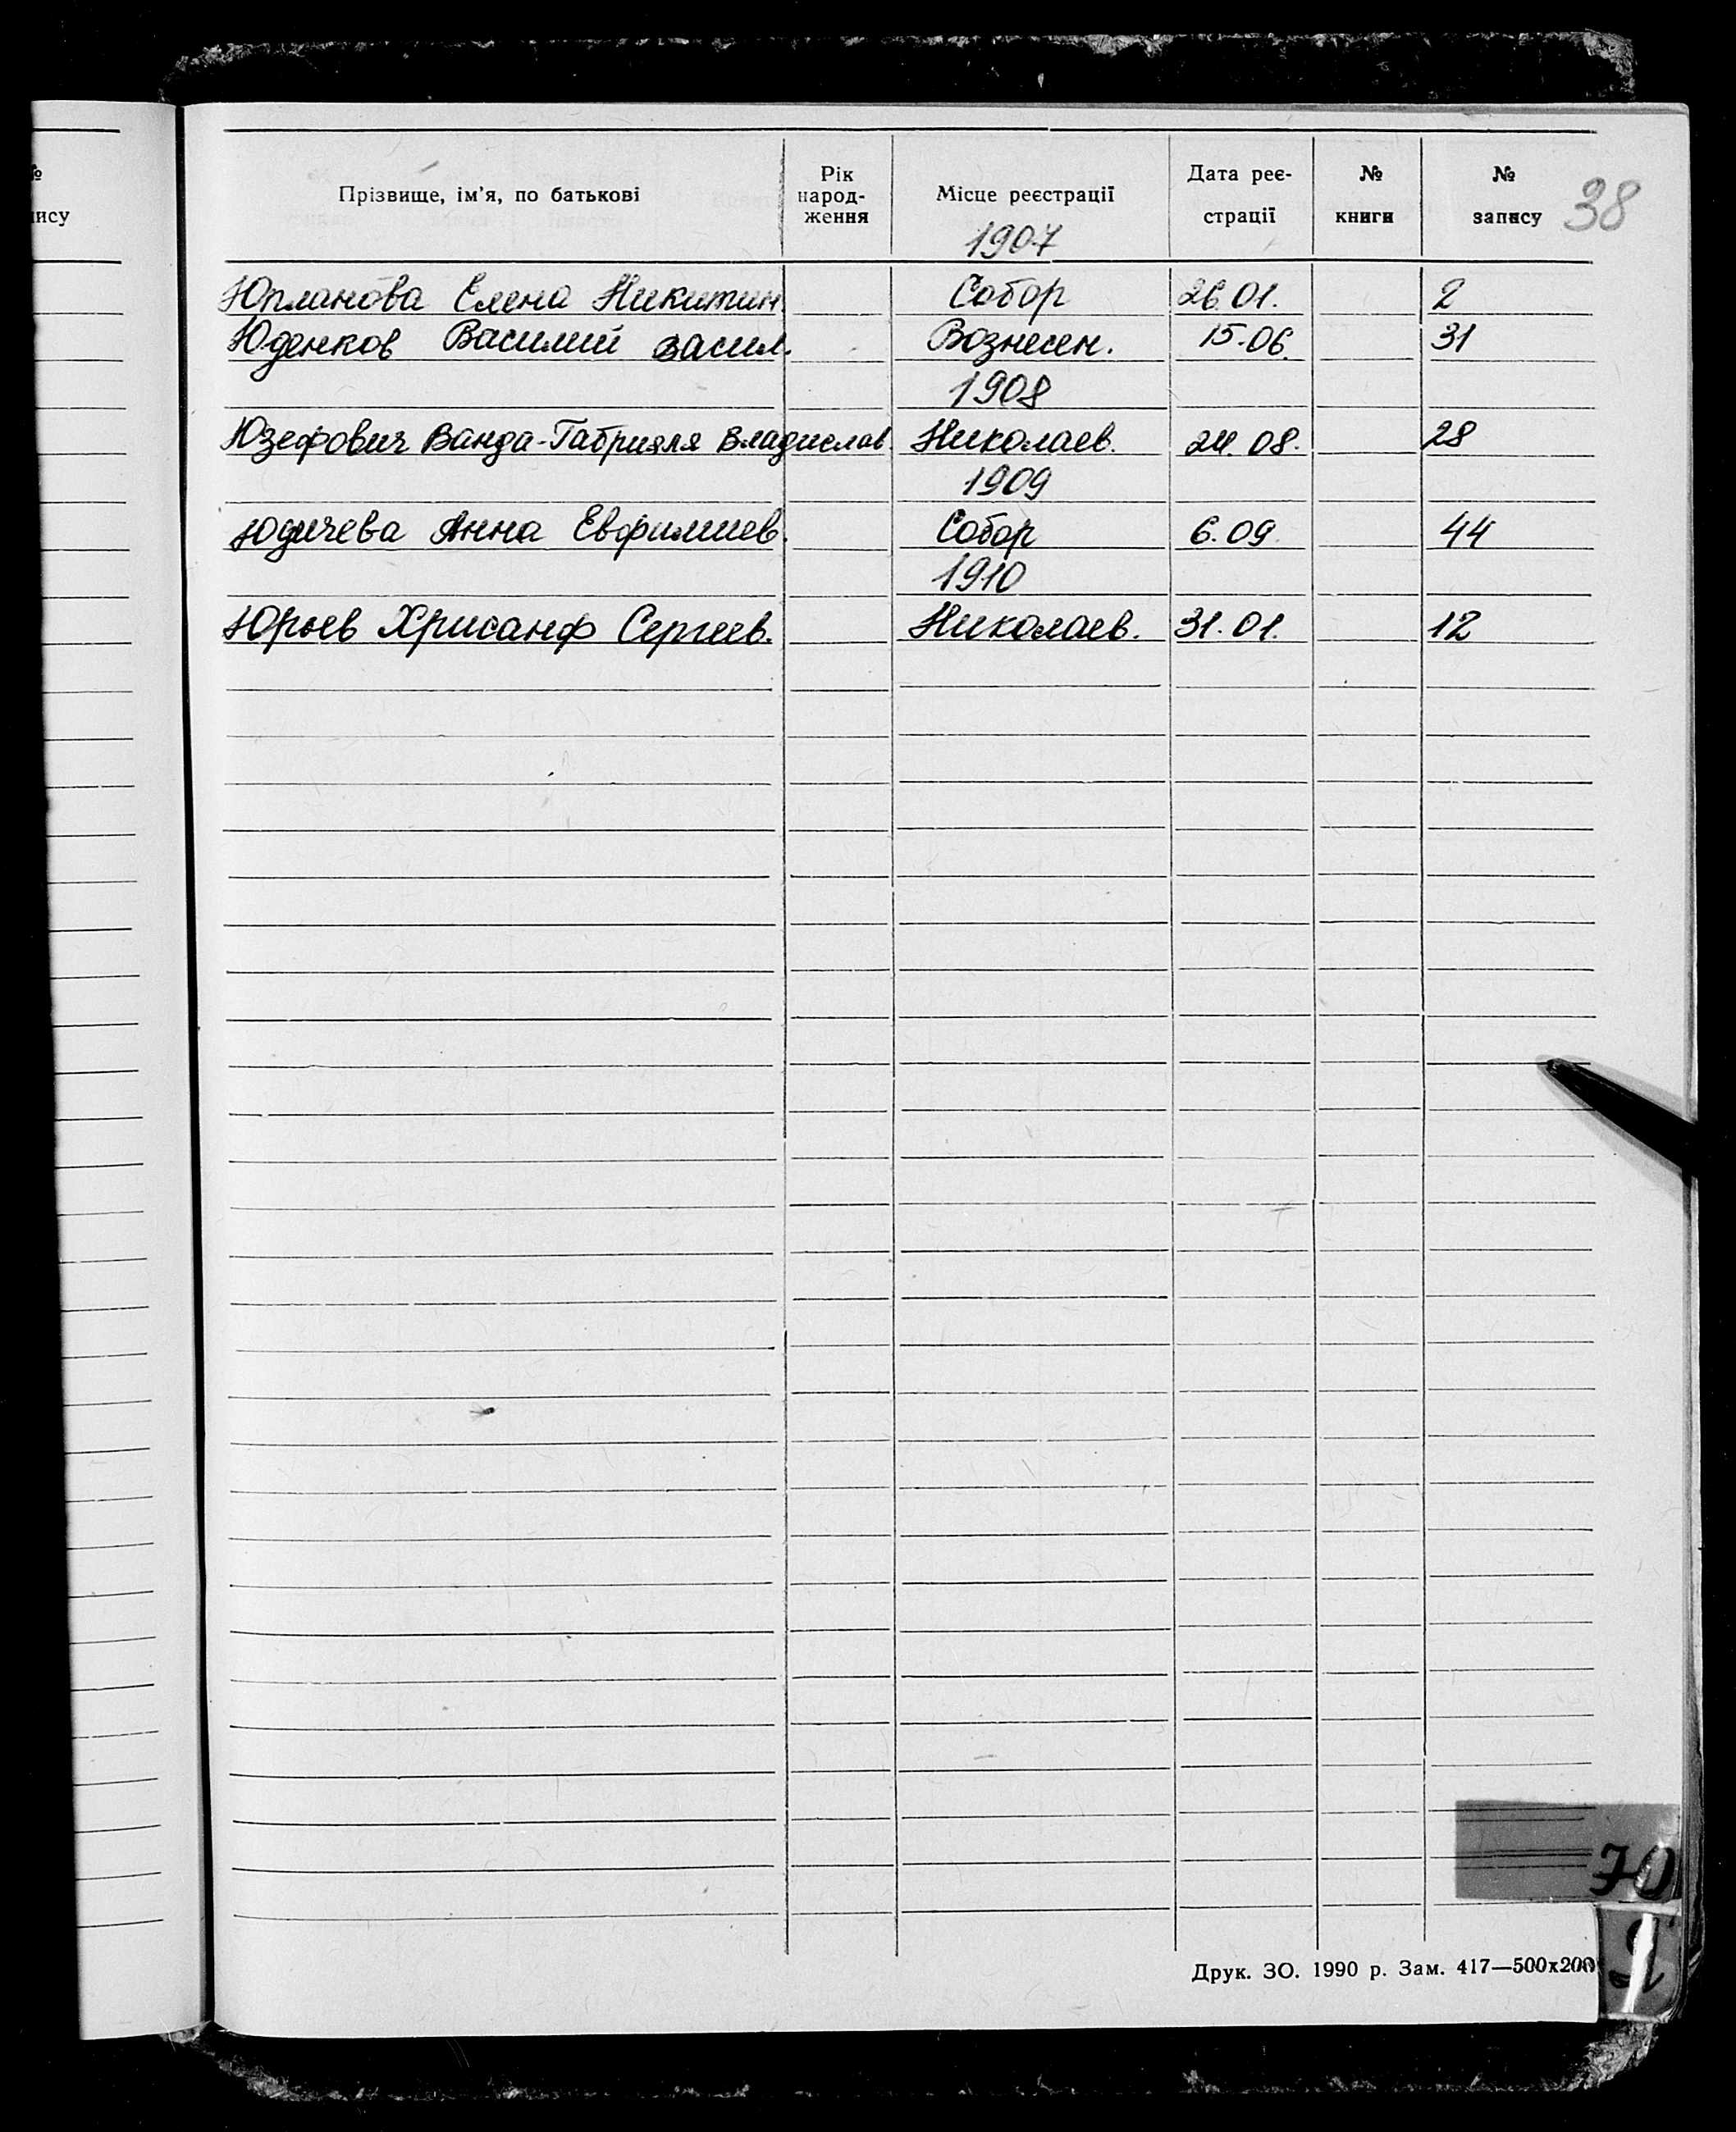 №
пису
Прізвище, ім'я, по батькові
Рік народ-ження
Місце реєстрації
Дата реє-страції
№ книги
№ запису
38
1907
Юпланова Елена Никитин. Собор 26.01. 2
Юденков Василий Васил. Вознесен. 15.06. 31
1908
Юзефович Ванда-Габриэля Владислав. Николаев. 24.08. 28
1909
Юдичева Анна Евфимиев. Собор 6.09. 44
1910
Юрьев Хрисанф Сергеев. Николаев. 31.01. 12
Ю
Друк. ЗО. 1990 р. Зам. 417—500х200